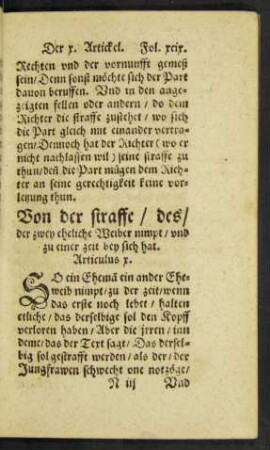 Der x. Artickel. Fol. xcix.
Rechten vnd der vornunfft gemeß
sein/ Denn sonst möchte sich der Part
dauon beruffen. Vnd in den ange-
zeigten fellen oder andern/ do dem
Richter die straffe zustehet/ wo sich
die Part gleich mit einander vertra-
gen/ Dennoch hat der Richter (wo er
nicht nachlassen wil) seine straffe zu
thun/ deñ die Part mügen dem Rich-
ter an seine gerechtigkeit keine vor-
letzung thun.
Von der straffe/ des/
der zwey eheliche Weiber nimpt/ vnd
zu einer zeit bey sich hat.
Articulus x.
SO ein Ehemã ein ander Ehe-
weib nimpt/ zu der zeit/ wenn
das erste noch lebet/ halten
etliche/ das derselbige sol den Kopff
verloren haben/ Aber die jrren/ inn
deme/ das der Text saget/ Das dersel-
big sol gestrafft werden/ als der/ der
Jungfrawen schwecht vnd notzöge/
N iij Vnd